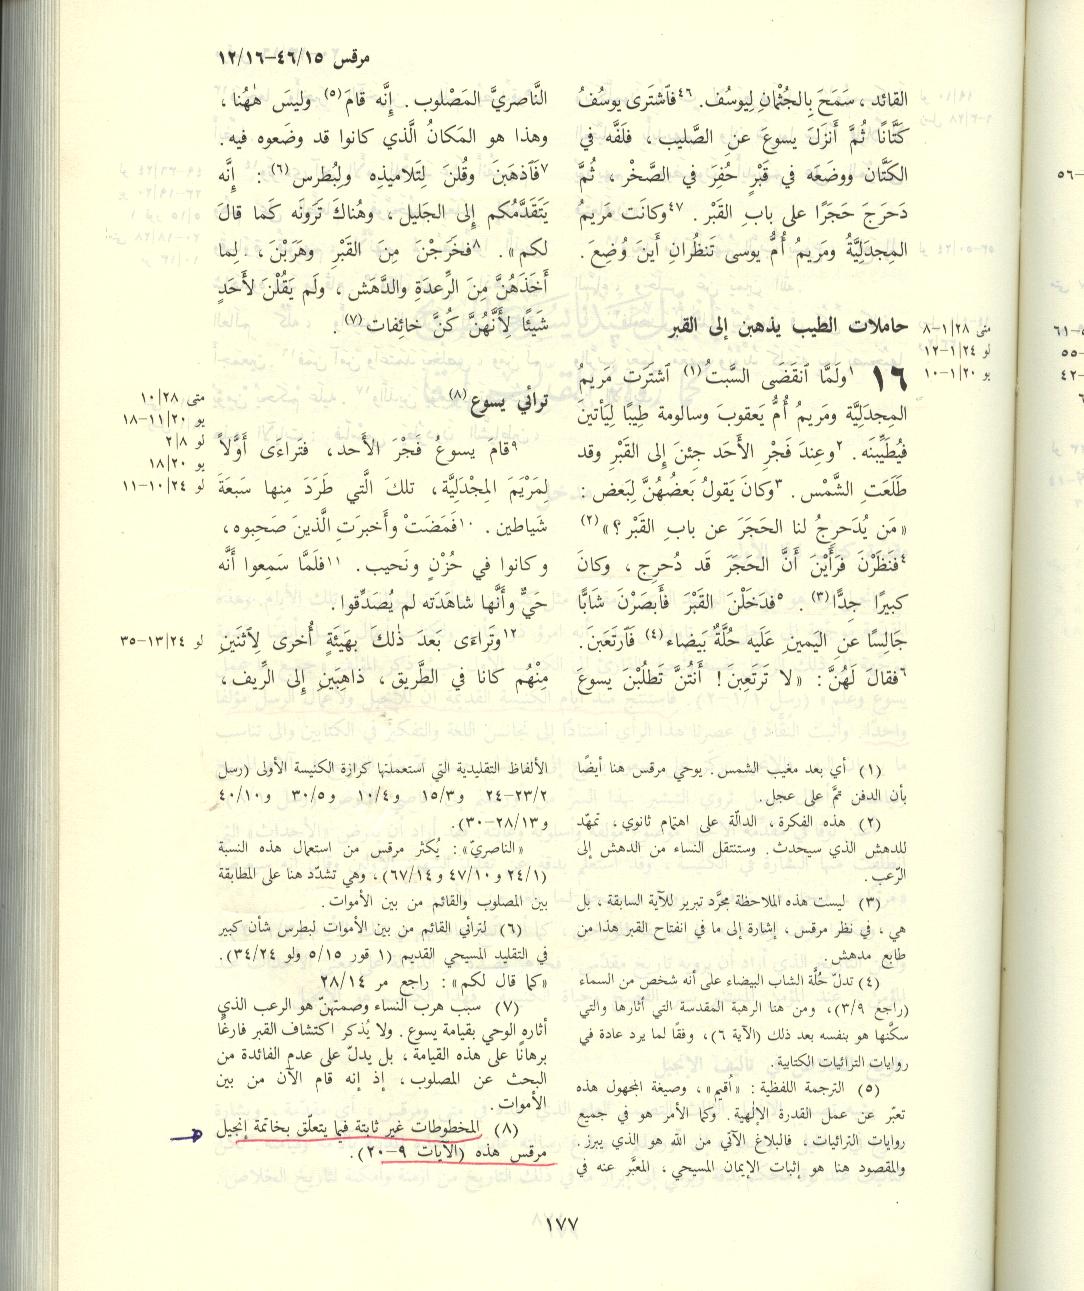 مرقس ٤٦/١٥–١٢/١٦
القائد ، سَمَحَ بِالجُثْمانِ لِيوسُف. ٤٦فٱشتَرى يوسُفُ
كَتَّانًا ثُمَّ أَنزَلَ يسوعَ عنِ الصَّليب ، فَلَفَّه في
الكَتَّان ووضَعَه في قَبْرٍ حُفِرَ في الصَّخْر ، ثُمَّ
دَحرَجَ حَجَرًا على بابِ القَبْر . ٤٧وكانَت مَريَمُ
المِجدَلِيَّةُ ومَريَمُ أُمُّ يوسى تَنظُرانِ أَينَ وُضِعَ.
حاملات الطيب يذهبن إلى القبر
متى ٢٨/١–٨
لو ٢٤/١–١٢
يو ٢٠/١–١٠
١٦ ١ولَمَّا ٱنقَضَى السَّبتُ(١) ٱشتَرَت مَريَمُ
المِجدَلِيَّة ومَريَمُ أُمُّ يَعقوبَ وسالومة طِيبًا لِيَأتينَ
فيُطَيِّبنَه . ٢وعِندَ فَجْرِ الأَحَد جِئنَ إِلى القَبْرِ وقد
طَلَعَتِ الشَّمْس . ٣وكانَ يَقولُ بَعضُهُنَّ لِبَعض :
«مَن يُدَحرِجُ لنا الحَجَرَ عن بابِ القَبْر ؟» (٢)
٤فنَظَرْنَ فَرَأَيْنَ أَنَّ الحَجَرَ قَد دُحرِج ، وكانَ
كبيرًا جِدًّا (٣) . ٥فدَخَلْنَ القَبْرَ فأَبصَرْنَ شَابًّا
جَالِسًا عنِ اليَمين عَلَيه حُلَّةٌ بَيضاء (٤) فَٱرتَعَبنَ.
٦فقالَ لَهُنَّ : «لا تَرتَعِبنَ ! أَنتُنَّ تَطلُبْنَ يسوعَ
النَّاصريَّ المَصْلوب . إِنَّه قامَ (٥) وليسَ هٰهُنا ،
وهذا هو المَكانُ الَّذي كانوا قد وضَعوه فيه.
٧فَٱذهَبنَ وقُلنَ لِتَلاميذِه ولِبُطرس (٦) : إِنَّه
يَتَقَدَّمُكم إِلى الجَليل ، وهُناكَ تَرَونَه كَما قالَ
لكم» . ٨فخَرَجْنَ مِنَ القَبْرِ وهَرَبْنَ ، لِما
أَخَذَهُنَّ مِنَ الرِّعدَةِ والدَّهَش ، ولَم يَقُلْنَ لأَحَدٍ
شَيئًا لِأَنَّهُنَّ كُنَّ خائِفات (٧) .
ترائي يسوع (٨)
متى ٢٨/١٠
يو ٢٠/١١–١٨
لو ٨/٢
يو ٢٠/١٨
لو ٢٤/١٠–١١
٩قامَ يسوعُ فَجْرَ الأَحد، فتَراءَى أَوَّلاً
لِمَرْيَمَ المِجْدَلِيَّة، تلكَ الَّتي طَرَدَ مِنها سَبعَةَ
شَياطين . ١٠فَمَضَتْ وأَخبرَتِ الَّذينَ صَحِبوه،
وكانوا في حُزْنٍ ونَحيب . ١١فلَمَّا سَمِعوا أَنَّه
حَيٌّ وأَنَّها شاهَدَته لم يُصَدِّقوا.
١٢وتَراءَى بَعدَ ذٰلكَ بِهَيئَةٍ أُخرى لِٱثنَينِ
لو ٢٤/١٣–٣٥
مِنْهُم كانا في الطَّريق، ذاهِبَينِ إِلى الرِّيف،
(١) أي بعد مغيب الشمس. يوحي مرقس هنا أيضًا
بأن الدفن تمّ على عجل.
(٢) هذه الفكرة، الدالّة على اهتمام ثانوي، تمهّد
للدهش الذي سيحدث. وستنتقل النساء من الدهش إلى
الرّعب.
(٣) ليست هذه الملاحظة مجرَّد تبرير للآية السابقة، بل
هي، في نظر مرقس، إشارة إلى ما في انفتاح القبر هذا من
طابع مدهش.
(٤) تدلّ حُلَّة الشاب البيضاء على أنه شخص من السماء
(راجع ٣/٩)، ومن هنا الرهبة المقدسة التي أثارها والتي
سكَّنها هو بنفسه بعد ذلك (الآية ٦)، وفقًا لما يرد عادة في
روايات الترائيات الكتابية.
(٥) الترجمة اللفظية: «أُقيم»، وصيغة المجهول هذه
تعبّر عن عمل القدرة الإلٰهية. وكما الأمر هو في جميع
روايات الترائيات، فالبلاغ الآتي من الله هو الذي يبرز.
والمقصود هنا هو إثبات الإيمان المسيحي، المعبَّر عنه في
الألفاظ التقليدية التي استعملتها كرازة الكنيسة الأولى (رسل
٢٣/٢–٢٤ و١٥/٣ و١٠/٤ و٣٠/٥ و٤٠/١٠
و٢٨/١٣–٣٠).
«الناصريّ»: يُكثر مرقس من استعمال هذه النسبة
(٢٤/١ و٤٧/١٠ و٦٧/١٤)، وهي تشدّد هنا على المطابقة
بين المصلوب والقائم من بين الأموات.
(٦) لترائي القائم من بين الأموات لبطرس شأن كبير
في التقليد المسيحي القديم (١ قور ٥/١٥ ولو ٣٤/٢٤).
«كما قال لكم»: راجع مر ٢٨/١٤
(٧) سبب هرب النساء وصمتهنّ هو الرعب الذي
أثاره الوحي بقيامة يسوع. ولا يُذكر اكتشاف القبر فارغًا
برهانًا على هذه القيامة، بل يدلّ على عدم الفائدة من
البحث عن المصلوب، إذ إنه قام الآن من بين
الأموات.
(٨) المخطوطات غير ثابتة فيما يتعلّق بخاتمة إنجيل
مرقس هذه (الآيات ٩–٢٠).
١٧٧